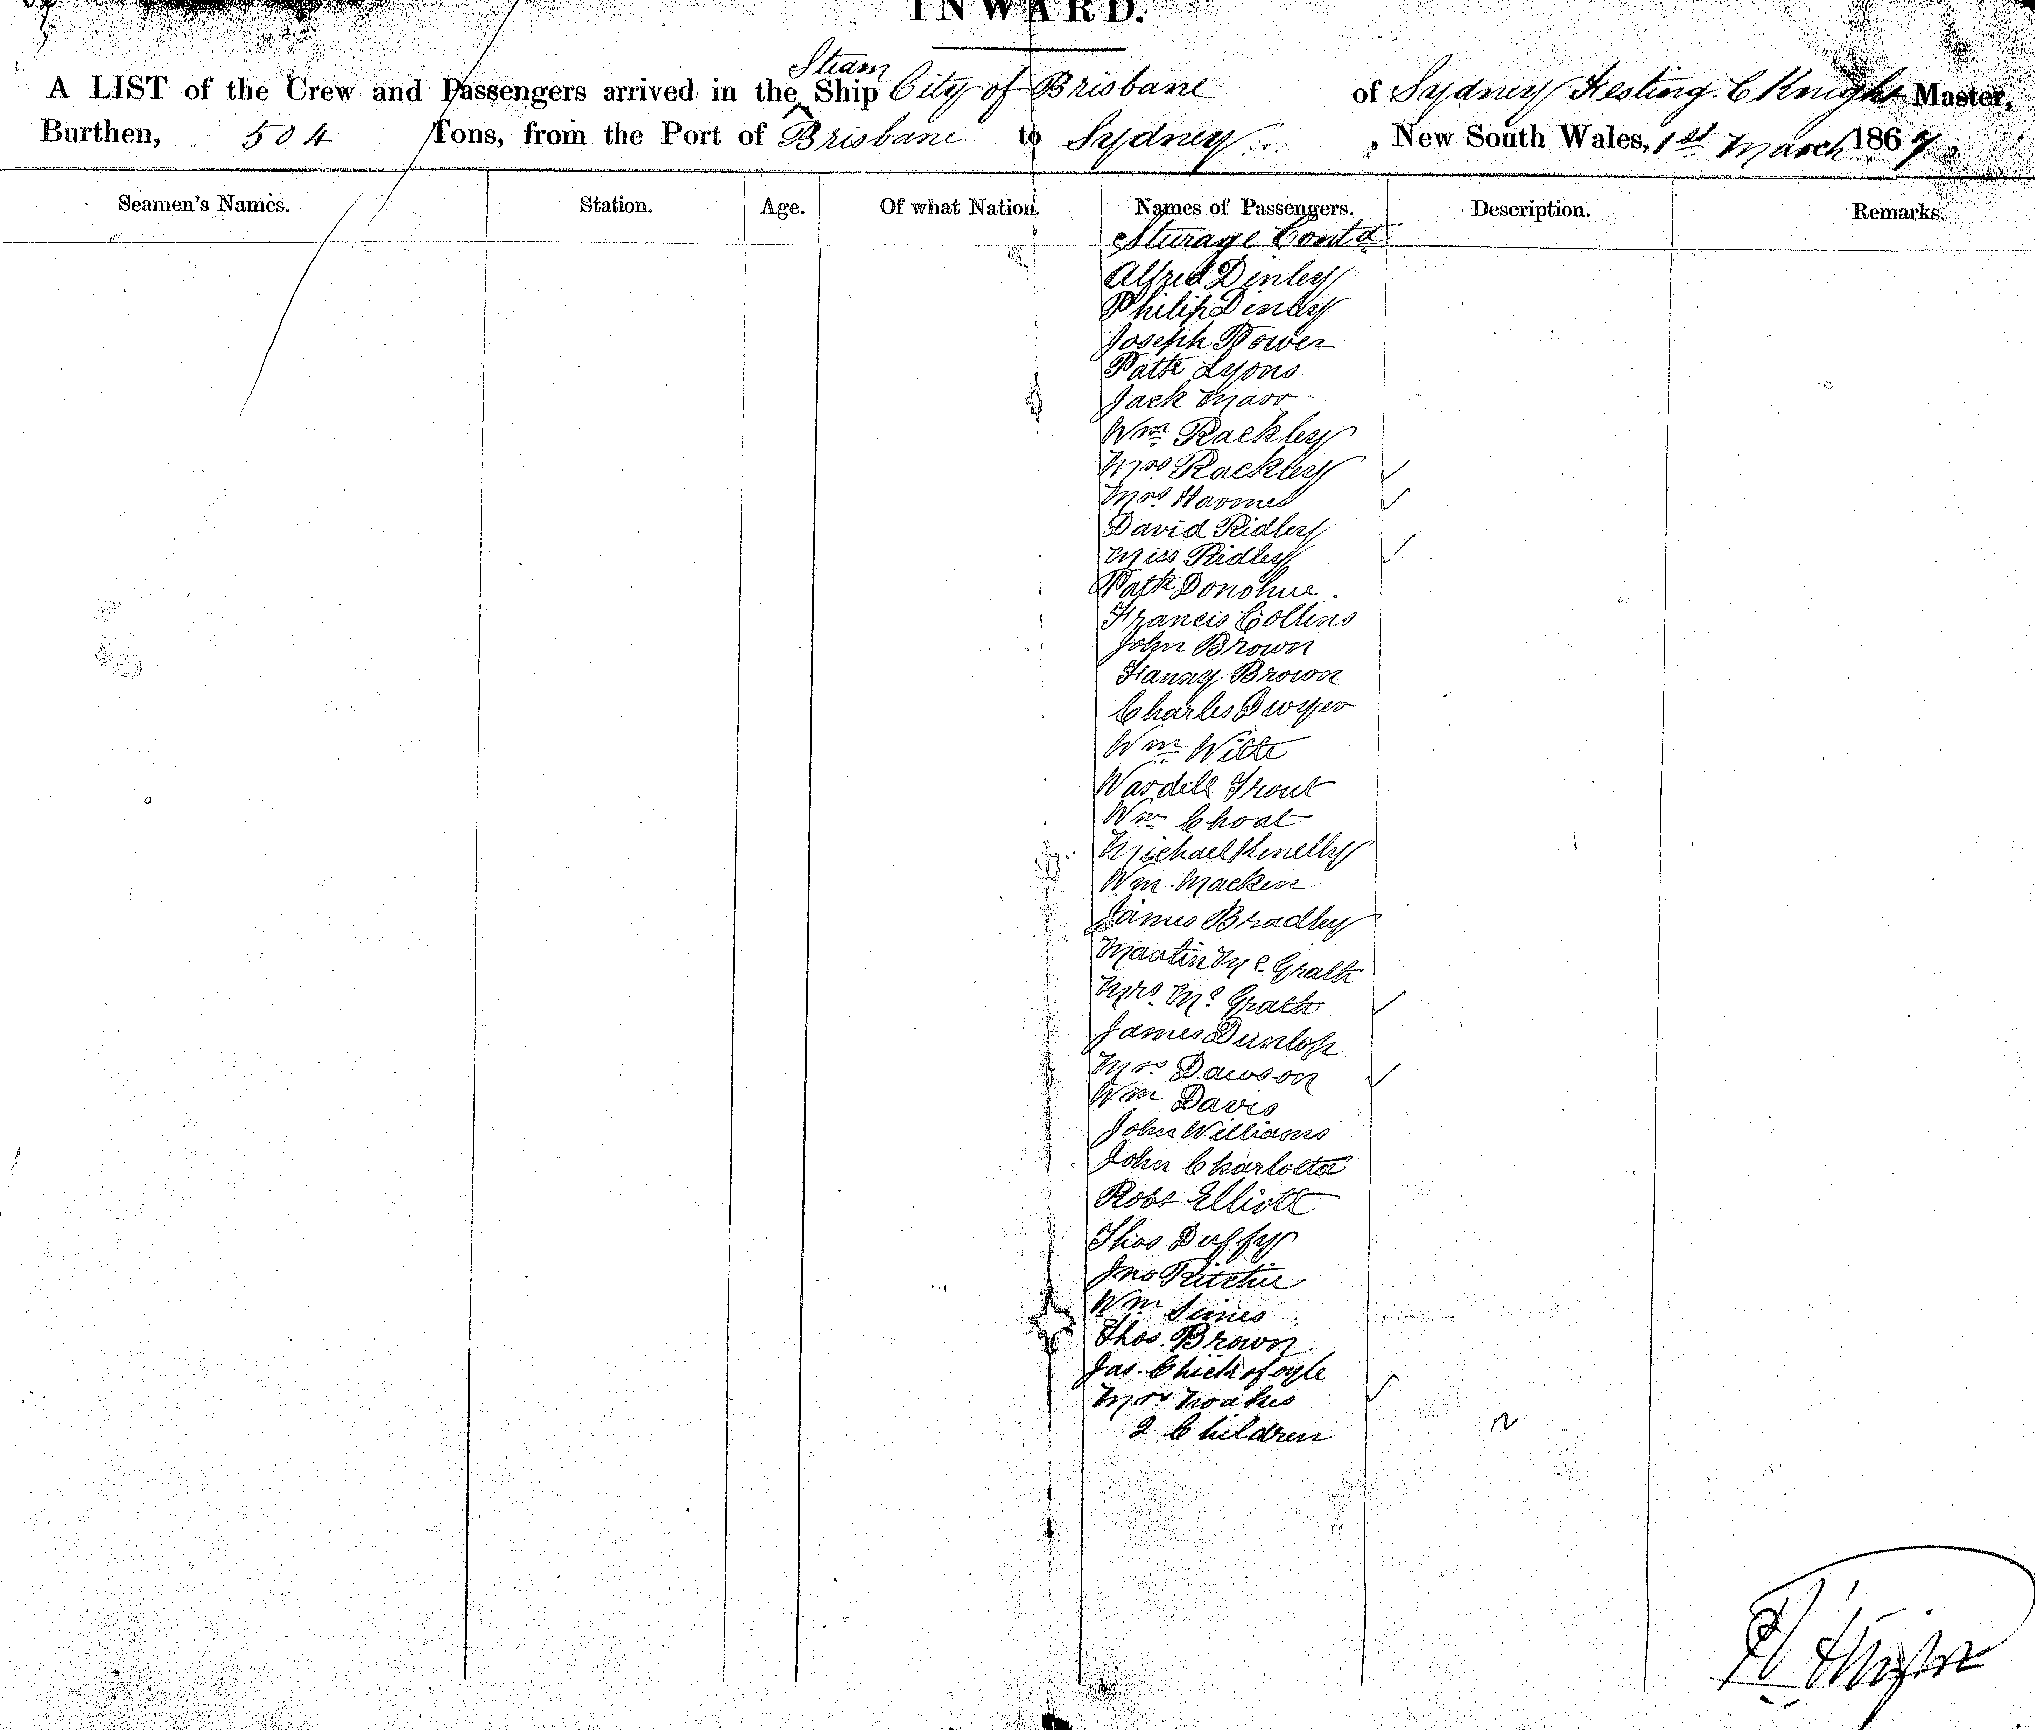 INWARD.
A LIST of the Crew and Passengers arrived in the Steam Ship City of Brisbane of Sydney Hesting. C Knight Master,
Burthen, 504 Tons, from the Port of Brisbane to Sydney , New South Wales, 1st March 1867.
Seamen's Names. Station. Age. Of what Nation. Names of Passengers. Description. Remarks.
Sturage Contd
Alfred Denley
Philip Denley
Joseph Power
Patk Lyons
Jack Marr
Wm Rackley
Mrs Rackley
Mrs Harmes
David Ridley
Miss Ridley
Patk Donohue
Francis Collins
John Brown
Fanny Brown
Charles Dwyer
Wm Witte
Wardell Trout
Wm Choat
Michael Kenelly
Wm Macken
James Bradley
Martin Mc Grath
Mrs Mc Grath
James Dunlop
Mrs Dawson
Wm Davis
John Williams
John Charlotta
Robt Elliott
Thos Duffy
Jno Ritchie
Wm Simes
Thos. Brown
Jas.
Mrs Noakes
2 Children